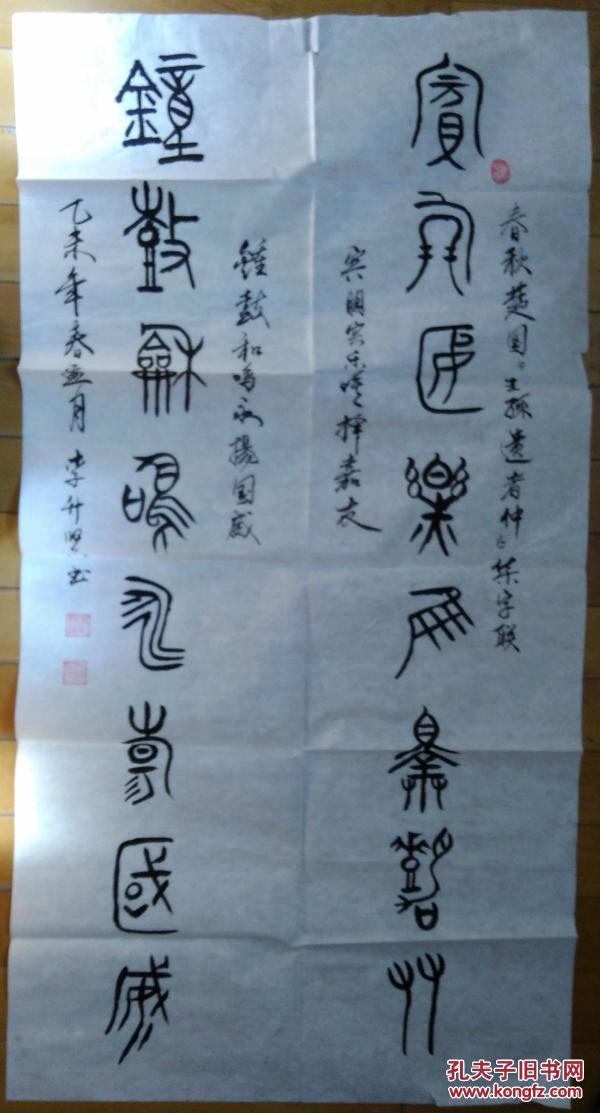 春秋楚国王孫遺者钟集字联
賓朋匽樂隹睪嘉友
宾朋宴乐唯择嘉友
鐘鼓和鸣永揚国威
鐘鼓龢鳴永揚國威
乙未年春月李升贤书
孔夫子旧书网
www.kongfz.com